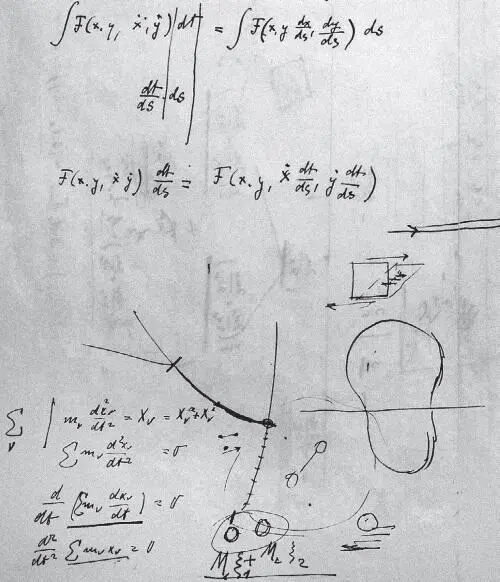 ∫ F(x, y, ẋ, ẏ) dt = ∫ F(x, y, dx/ds, dy/ds) ds
dt/ds · ds
F(x, y, ẋ ẏ) dt/ds = F(x, y, ẋ dt/ds, ẏ dt/ds)
∑ν | mν d²xν/dt² = Xν = Xν^a + Xν^i
∑ mν d²xν/dt² = 0
d/dt (∑ mν dxν/dt) = 0
d²/dt² ∑ mν xν = 0
M₁ξ₁ + M₂ξ₂